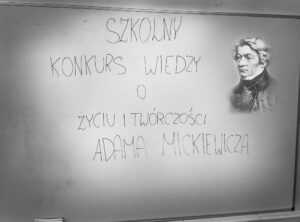 SZKOLNY
KONKURS WIEDZY
O
ŻYCIU I TWÓRCZOŚCI
ADAMA MICKIEWICZA